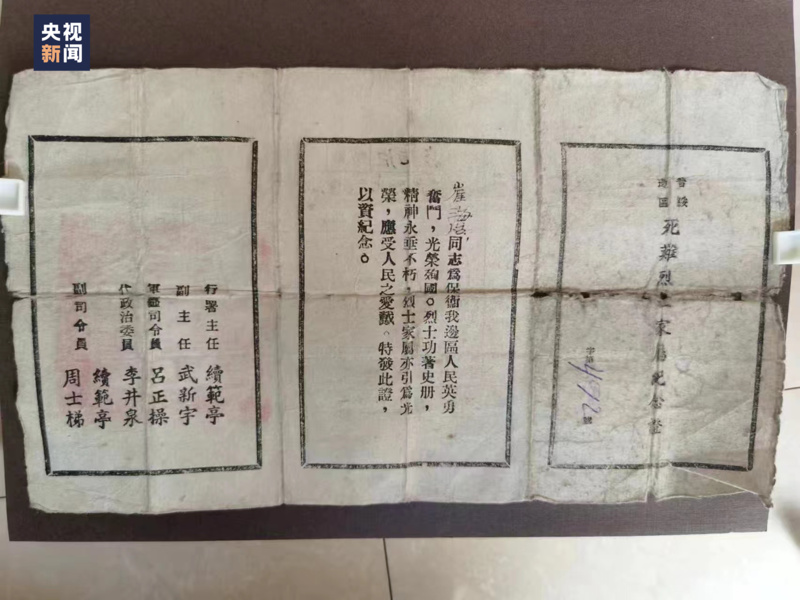 央视
新闻
晋綏
邊區
死難烈士家屬紀念證
字第4572號
崔海治同志爲保衛我邊區人民英勇
奮鬥，光榮殉國。烈士功著史册，
精神永垂不朽，烈士家屬亦引爲光
榮，應受人民之愛戴。特發此證，
以資紀念。
行署主任 續範亭
副主任 武新宇
軍區司令員 呂正操
代政治委員 李井泉
副司令員 續範亭
周士梯